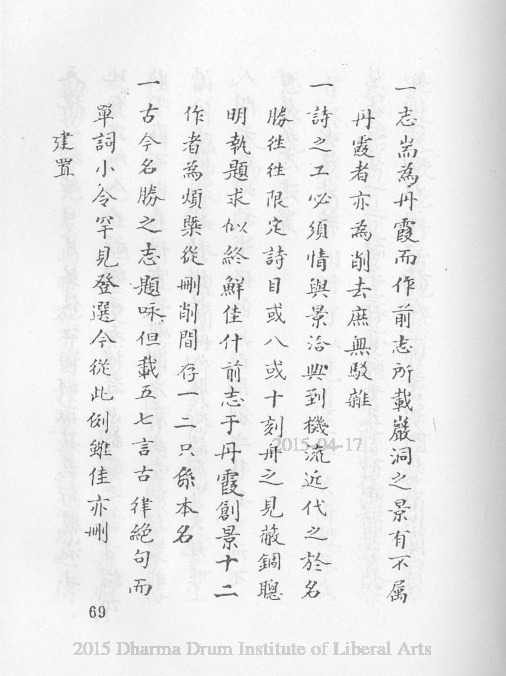 一志耑為丹霞而作前志所載巖洞之景有不属
丹霞者亦為削去庶無駁雜
一詩之工必須情與景洽興到機流近代之於名
勝徃徃限定詩目或八或十刻舟之見蔽錮聰
明執題求似終鮮佳什前志于丹霞創景十二
作者為煩槩從刪削間存一二只係本名
一古今名勝之志題咏但載五七言古律絶句而
單詞小令罕見登選今從此例雖佳亦刪
建置
69
2015-04-17
2015 Dharma Drum Institute of Liberal Arts